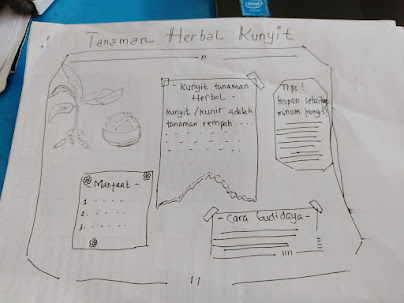 Tanaman Herbal Kunyit
- Kunyit tanaman
Herbal -
Kunyit/kunir adalah
tanaman rempah ....
Tips!
Kapan sebaiknya
minum kunyit?
- Manfaat -
1. ....
2. ....
3. ....
- Cara budidaya -
intel